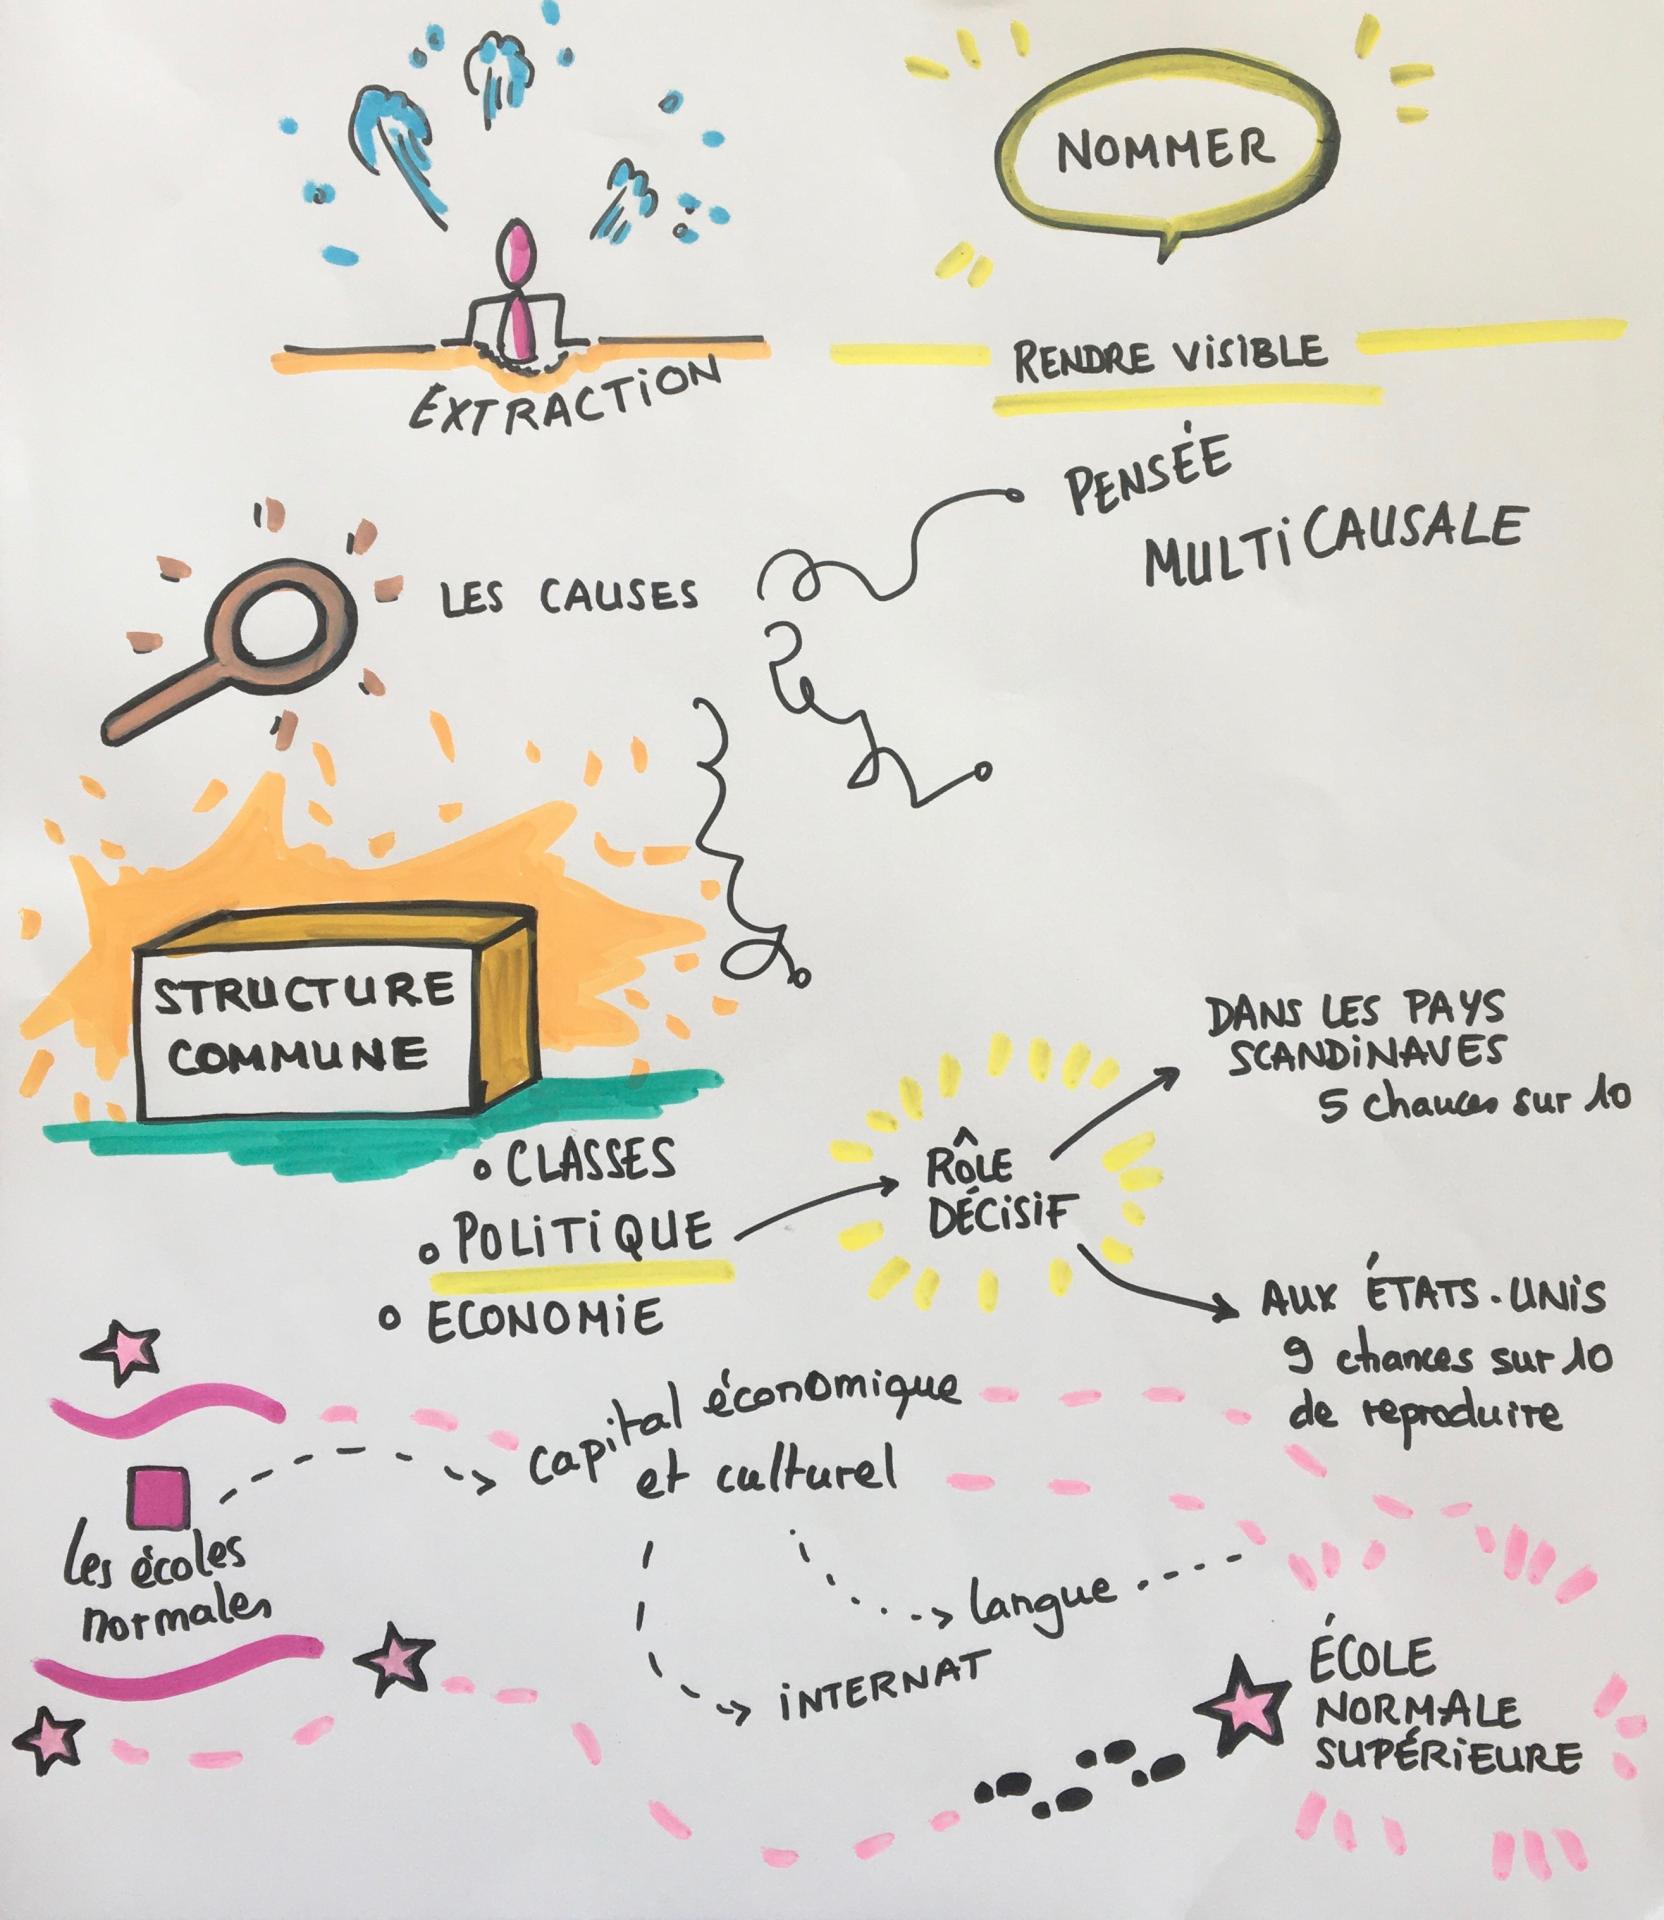 NOMMER
EXTRACTION
RENDRE VISIBLE
PENSÉE
MULTICAUSALE
LES CAUSES
STRUCTURE
COMMUNE
• CLASSES
• POLITIQUE
• ECONOMIE
RÔLE
DÉCISIF
DANS LES PAYS
SCANDINAVES
5 chances sur 10
AUX ÉTATS-UNIS
9 chances sur 10
de reproduire
capital économique
et culturel
les écoles
normales
langue
INTERNAT
ÉCOLE
NORMALE
SUPÉRIEURE